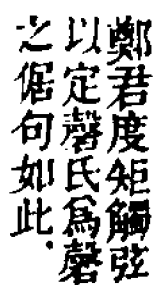 鄭君度矩觸弦
以定磬氏爲磬
之倨句如此．